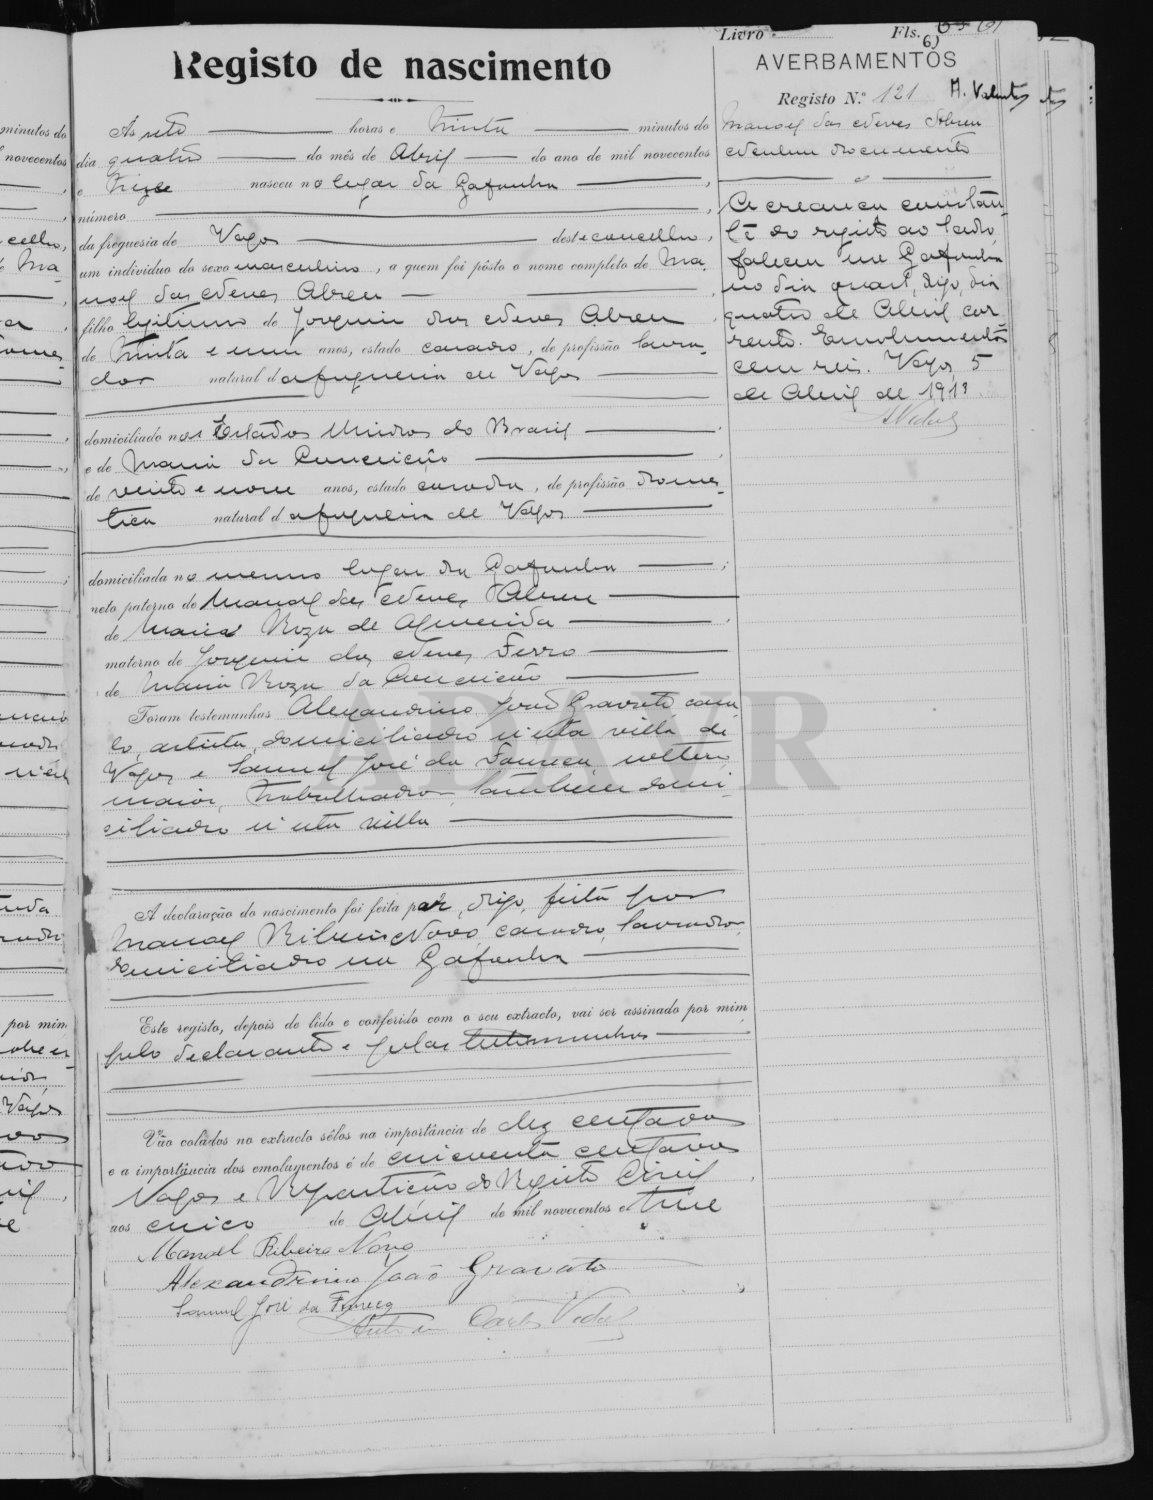 Livro Fls. 61
Registo de nascimento
AVERBAMENTOS
Registo N.º 121
Manoel das Neves Abreu
Nenhum documento
A creança constan-
te do registo ao lado,
faleceu na Gafanha
no dia quart, digo, dia
quatro de Abril cor
rente. Emolumentos
cem reis. Vagos, 5
de Abril de 1913
AVidal
Ás sete horas e trinta minutos do
dia quatro do mês de Abril do ano de mil novecentos
e treze nasceu no lugar da Gafanha ,
número ,
da freguesia de Vagos deste concelho,
um individuo do sexo masculino, a quem foi pôsto o nome completo de Ma-
noel das Neves Abreu
filho legitimo de Joaquim das Neves Abreu
de trinta e um anos, estado casado, de profissão lavra-
dor natural da freguesia de Vagos
domiciliado nos Estados Unidos do Brasil
e de Maria da Conceição
de vinte e nove anos, estado casada, de profissão domes-
tica natural da freguesia de Vagos
domiciliada no mesmo lugar da Gafanha ;
neto paterno de Manoel das Neves Abreu
de Maria Roza de Almeida
materno de Joaquim das Neves Ferro
de Maria Roza da Conceição
Foram testemunhas Alexandrino João Gravato casa-
do, artista, domiciliado n'esta villa de
Vagos e Samuel José da Fonseca, solteiro,
maior, trabalhador, tambem domi-
ciliado n'esta villa
A declaração do nascimento foi feita por, digo, feita por
Manoel Ribeiro Novo, casado, lavrador,
domiciliado na Gafanha
Este registo, depois de lido e conferido com o seu extracto, vai ser assinado por mim
pelo declarante e pelas testemunhas
Vão colados no extracto sêlos na importância de dez centavos
e a importância dos emolumentos é de cincoenta centavos
Vagos e Repartição do Registo Civil
aos cinco de Abril de mil novecentos e treze
Manoel Ribeiro Novo
Alexandrino João Gravato
Samuel José da Fonseca
Carlos Vidal
ADAVR